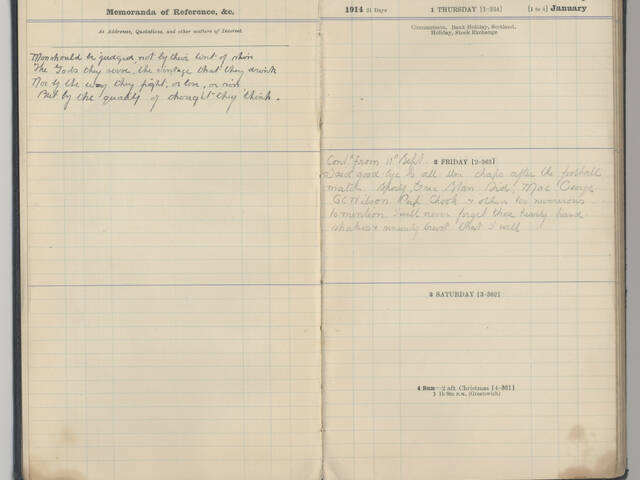 Memoranda of Reference, &c.
As Addresses, Quotations, and other matters of Interest.
Men should be judged, not by their tint of skin
The Gods they serve, the vintage that they drink
Nor by the way they fight, or love, or sin
But by the quality of thought they think.
1914 31 Days 1 THURSDAY [1-364] [1 to 4] January
Circumcision. Bank Holiday, Scotland.
Holiday, Stock Exchange
Contd from 11th Sept. 2 FRIDAY [2-363]
Said good bye to all the chaps after the football
match. Stan Sid, Mac George
Wilson Chook & others too numerous
to mention I will never forget those hearty hand
shakes & trust that I will
3 SATURDAY [3-362]
4 Sun—2 aft Christmas [4-361]
(Greenwich)